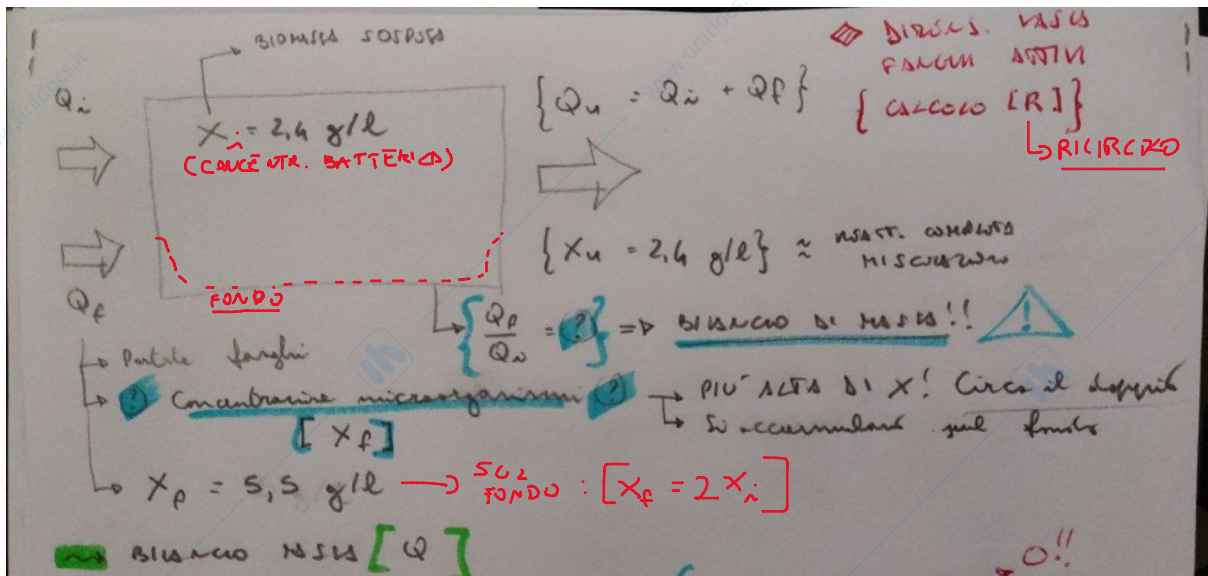 BIOMASSA SOSPESA
DIMENS. VASCA
FANGHI ATTIVI
{ CALCOLO [R] }
RICIRCOLO
Qi
Xi = 2,4 g/l
(CONCENTR. BATTERICA)
{ Qu = Qi + Qf }
{ Xu = 2,4 g/l } ≈ REATT. COMPLETA
MISCELAZIONE
FONDO
Qf
{ Qf/Qi = ? } => BILANCIO DI MASSA!! !
Portata fanghi
? Concentrazione microorganismi ? → PIÙ ALTA DI X! Circa il doppio
[Xf]
Si accumulano sul fondo
Xf = 5,5 g/l → SUL FONDO : [Xf = 2 Xi]
BILANCIO MASSA [ Q ]
O!!
www.unidocs.it